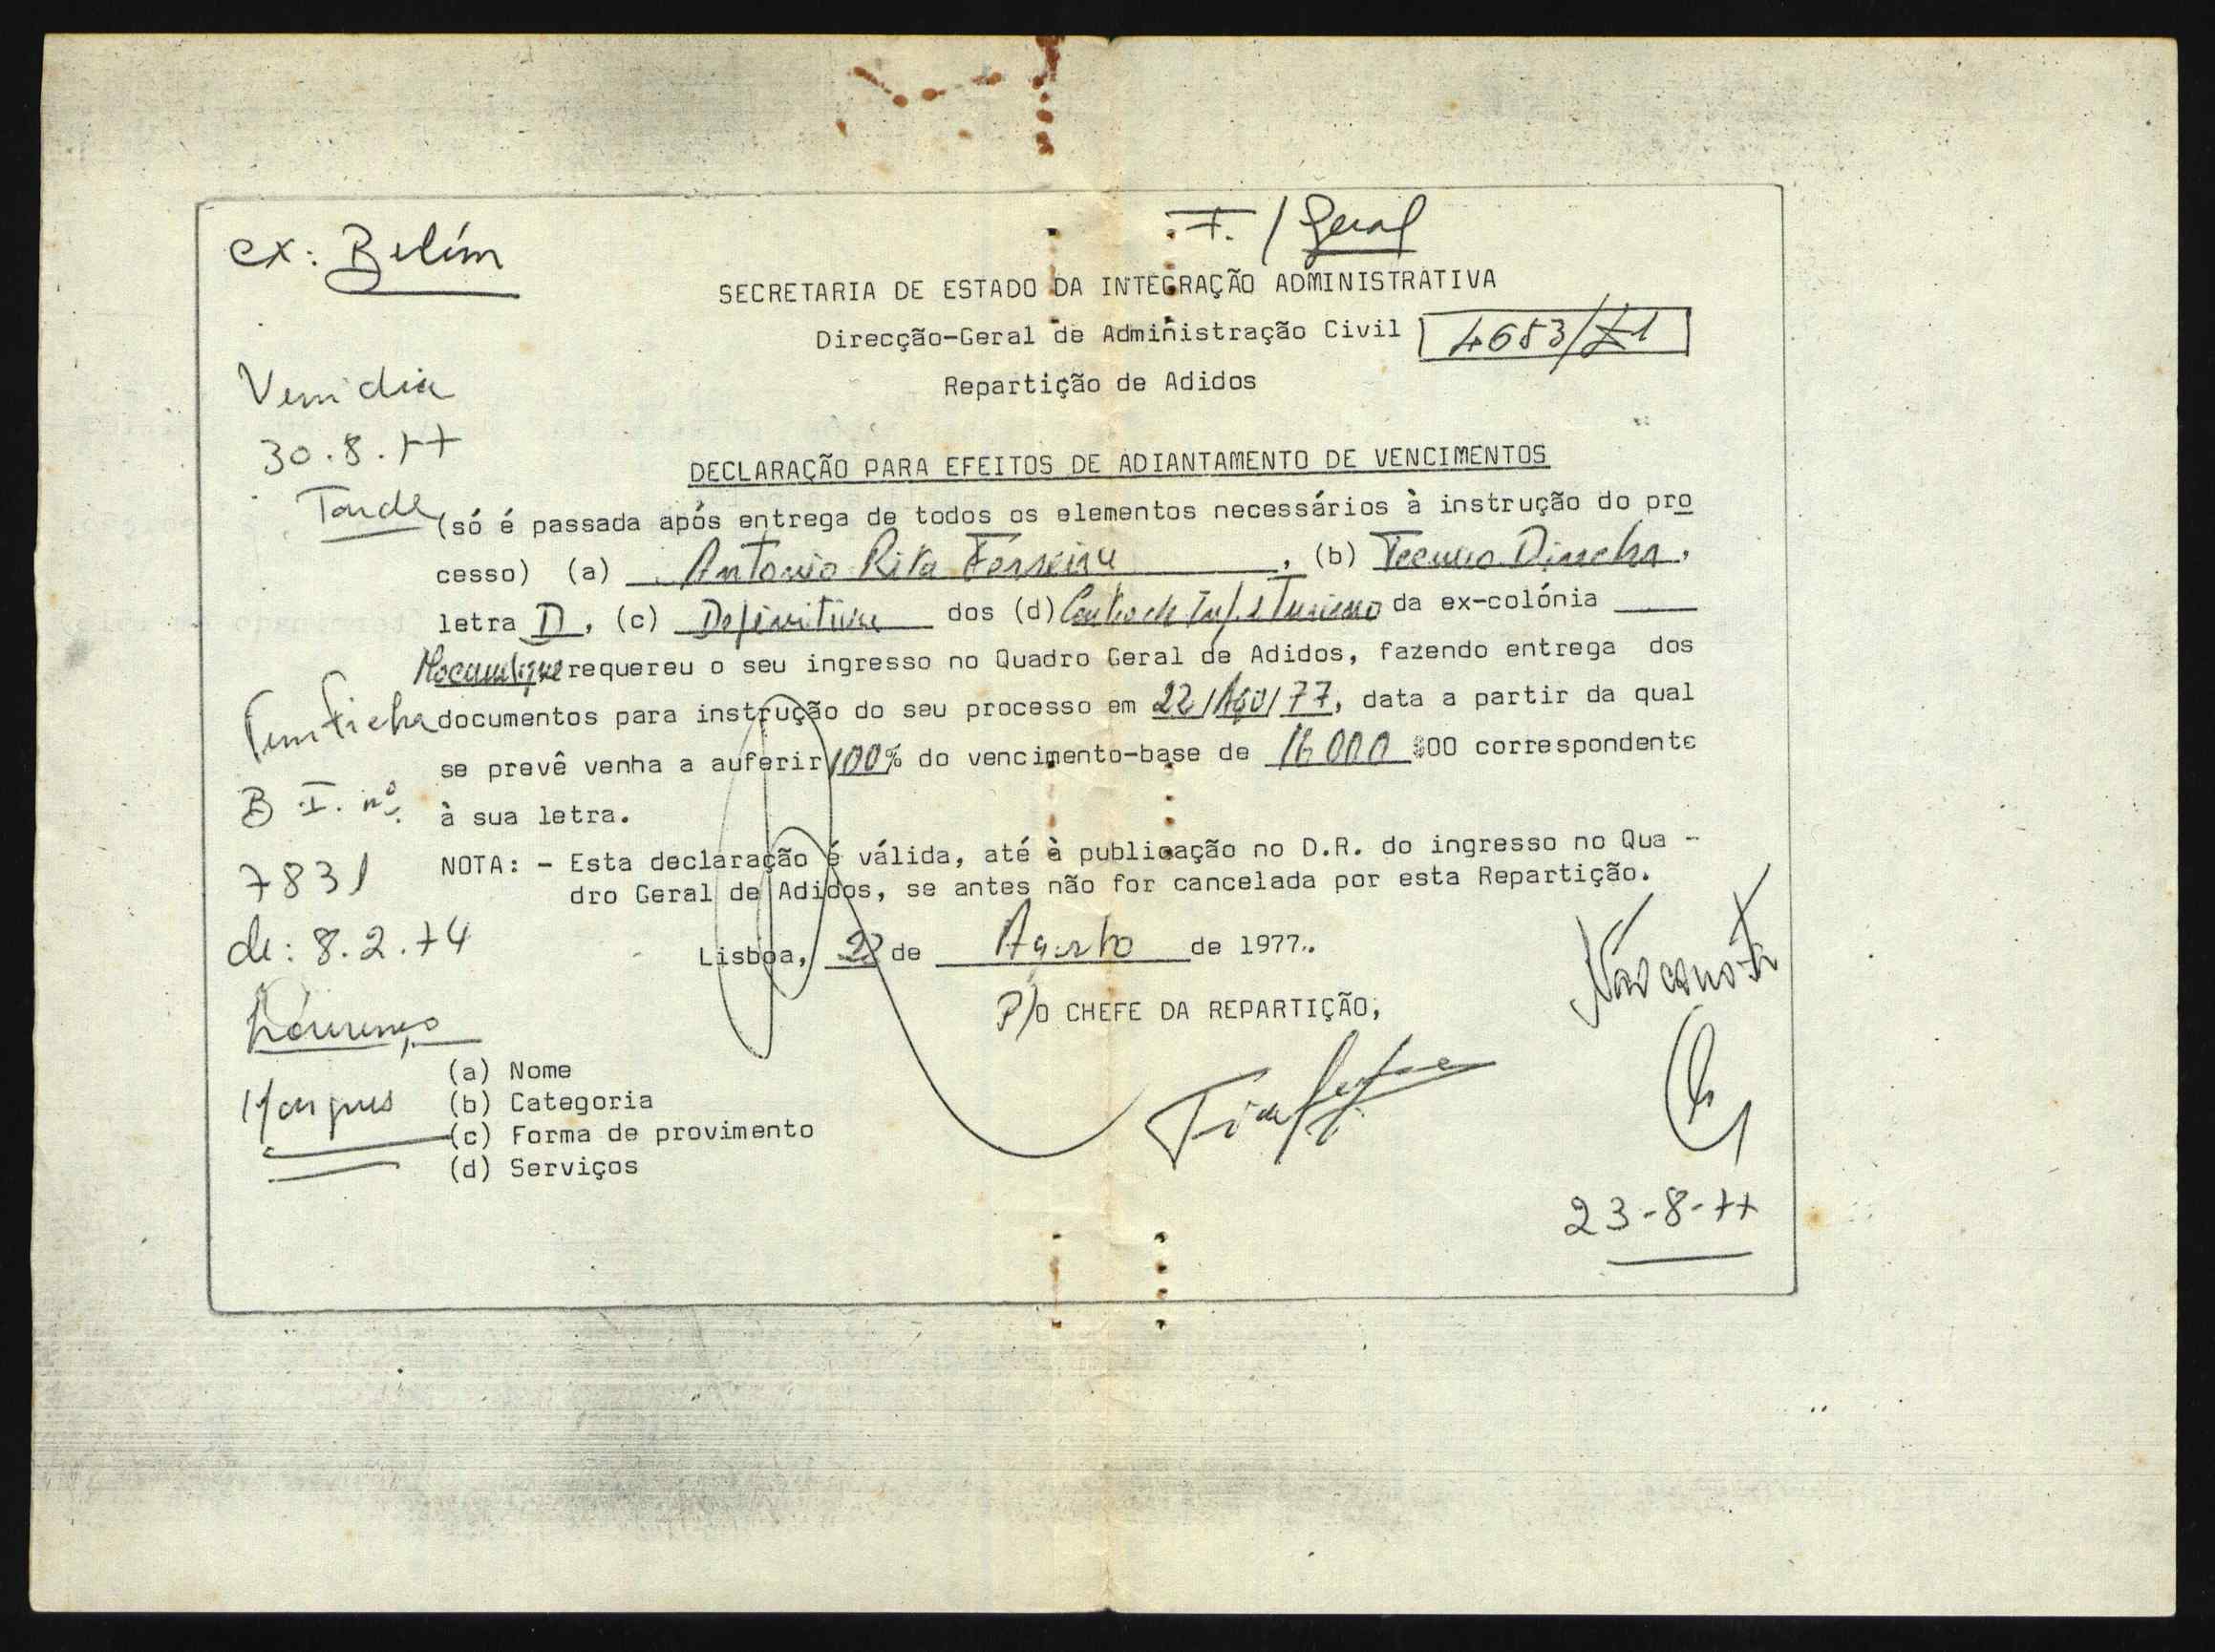 ex: Belém
F. / Geral
SECRETARIA DE ESTADO DA INTEGRAÇÃO ADMINISTRATIVA
Direcção-Geral de Administração Civil
4653/Z1
Repartição de Adidos
Vem dia
30.8.77
Tarde
DECLARAÇÃO PARA EFEITOS DE ADIANTAMENTO DE VENCIMENTOS
(só é passada após entrega de todos os elementos necessários à instrução do pro
cesso) (a) Antonio Rita Ferreira, (b) Tecnico Director.
letra D, (c) Definitiva dos (d) Centro de Inf. e Turismo da ex-colónia
Moçambique requereu o seu ingresso no Quadro Geral de Adidos, fazendo entrega dos
documentos para instrução do seu processo em 22/Ago/77, data a partir da qual
se prevê venha a auferir 100% do vencimento-base de 16 000 $00 correspondente
à sua letra.
NOTA: - Esta declaração é válida, até à publicação no D.R. do ingresso no Qua -
dro Geral de Adidos, se antes não for cancelada por esta Repartição.
Lisboa, 22 de Agosto de 1977.
P/O CHEFE DA REPARTIÇÃO,
Tem ficha
B.I. nº.
7831
de: 8.2.74
Lourenço
Marques
(a) Nome
(b) Categoria
(c) Forma de provimento
(d) Serviços
Não consta
23-8-77